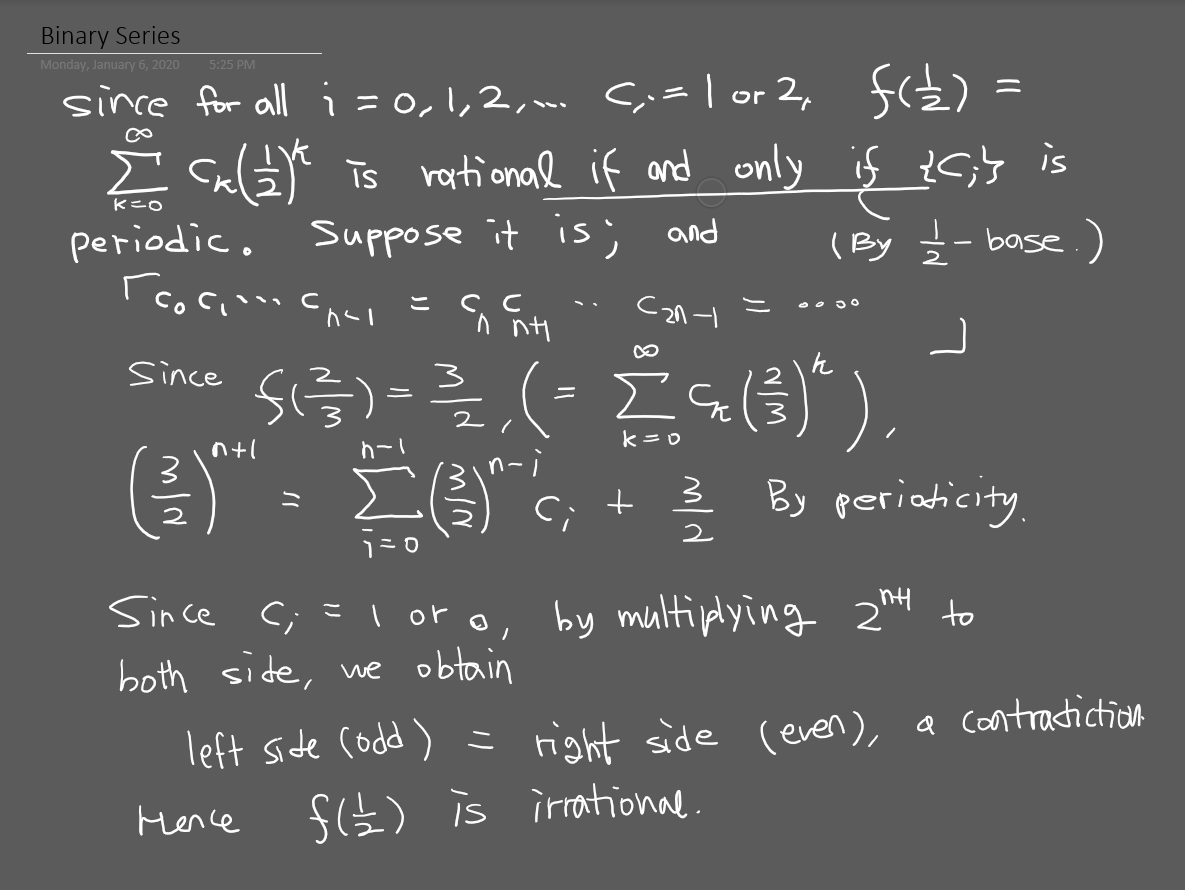 Binary Series
Monday, January 6, 2020 5:25 PM
since for all i = 0, 1, 2, ... C_i = 1 or 2, f(1/2) =
∑_{k=0}^{∞} C_k (1/2)^k is rational if and only if {C_i} is
periodic. Suppose it is; and (By 1/2 - base.)
「 C_0 C_1 ... C_{n-1} = C_n C_{n+1} .. C_{2n-1} = .... 」
Since f(2/3) = 3/2, (= ∑_{k=0}^{∞} C_k (2/3)^k),
(3/2)^{n+1} = ∑_{i=0}^{n-1} (3/2)^{n-i} C_i + 3/2 By periodicity.
Since C_i = 1 or 0, by multiplying 2^{n+1} to
both side, we obtain
left side (odd) = right side (even), a contradiction
Hence f(1/2) is irrational.